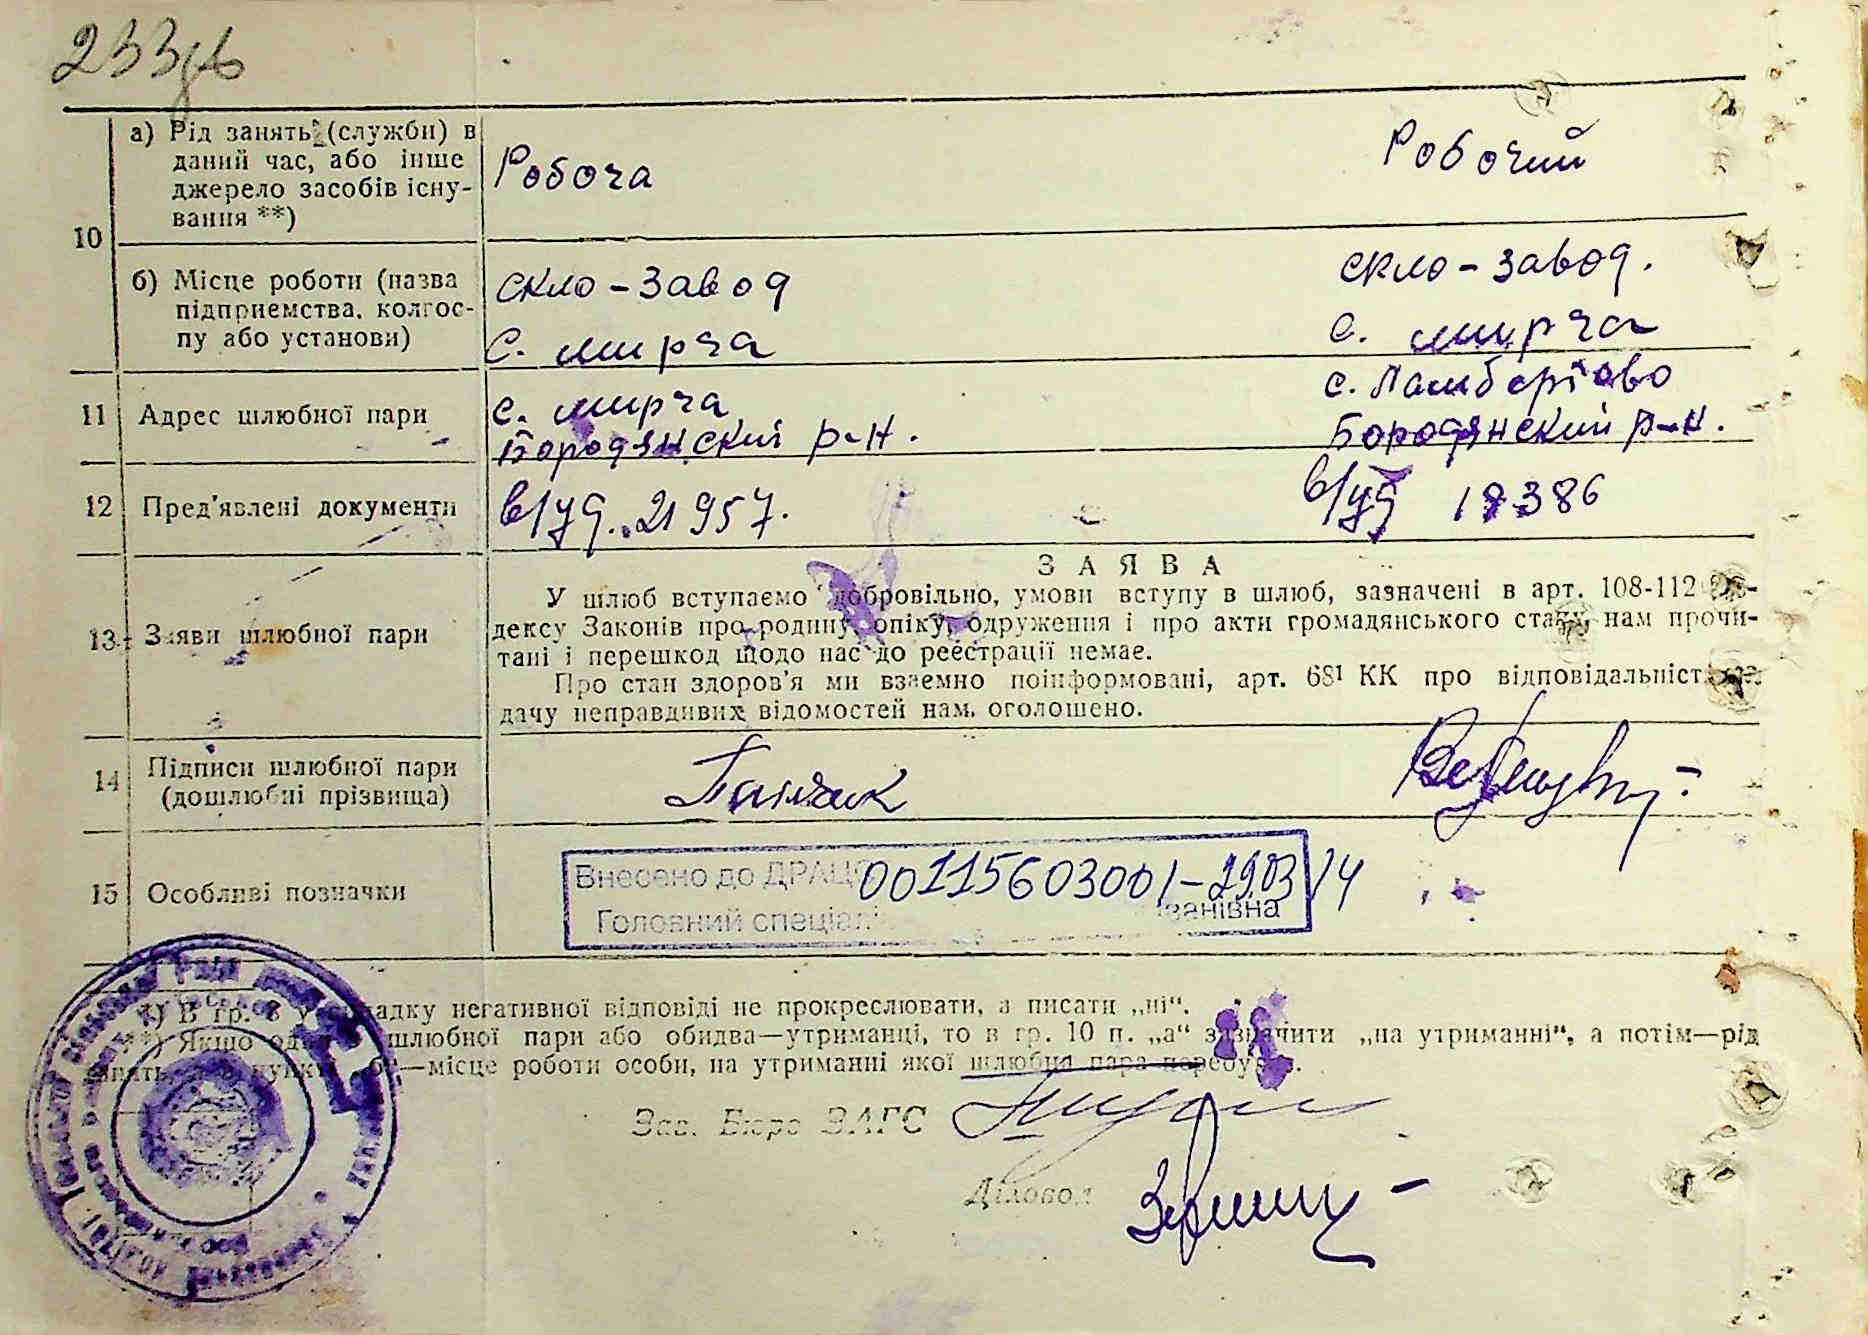 233
10
а) Рід занять (служби) в
даний час, або інше
джерело засобів існу-
вання **)
Робоча
Робочий
б) Місце роботи (назва
підприємства, колгос-
пу або установи)
скло-завод
с. мирча
скло-завод.
с. мирча
11
Адрес шлюбної пари
с. мирча
Бородянский р-н.
с.
Бородянский р-н.
12
Пред'явлені документи
в/уд. 21957.
в/уд 18386
13
Заяви шлюбної пари
ЗАЯВА
У шлюб вступаємо добровільно, умови вступу в шлюб, зазначені в арт. 108-112
дексу Законів про родину, опіку, одруження і про акти громадянського стану, нам прочи-
тані і перешкод щодо нас до реєстрації немає.
Про стан здоров'я ми взаємно поінформовані, арт. 68¹ КК про відповідальність за
дачу неправдивих відомостей нам, оголошено.
14
Підписи шлюбної пари
(дошлюбні прізвища)
15
Особливі позначки
Внесено до ДРАЦ 00115603001-29.03 14
Головний спеціалі
*) В гр. 8 у випадку негативної відповіді не прокреслювати, а писати „ні“.
**) Якщо один з шлюбної пари або обидва—утриманці, то в гр. 10 п. „а“ зазначити „на утриманні“, а потім—рід
занять, а в пункті „б“—місце роботи особи, на утриманні якої шлюбна пара перебуває.
Зав. Бюро ЗАГС
Діловод